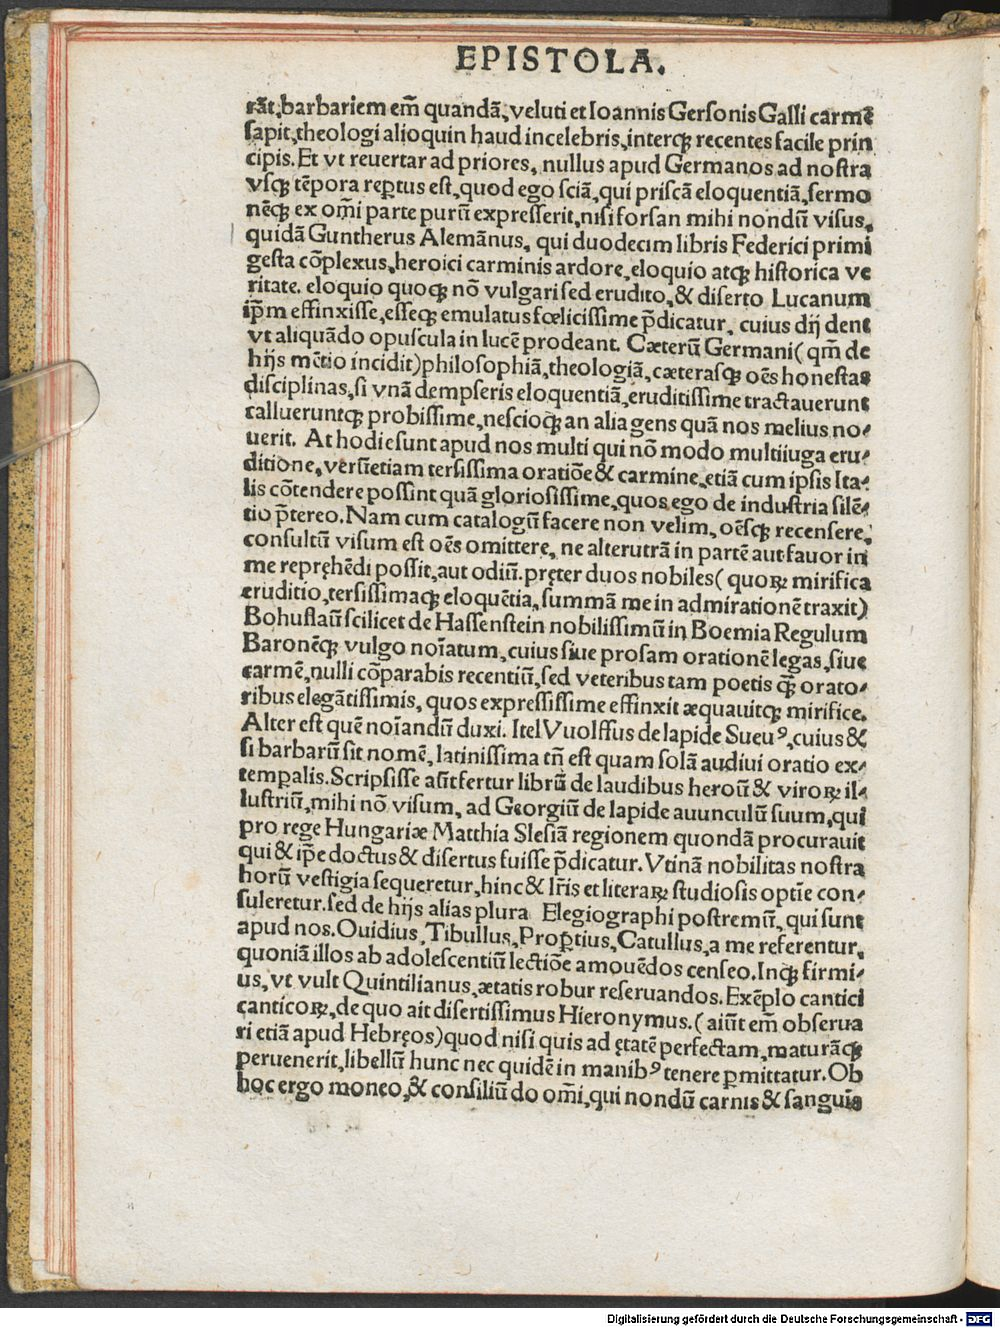 EPISTOLA.
rãt, barbariem em̃ quandã, veluti et Ioannis Gersonis Galli carmẽ
sapit, theologi alioquin haud incelebris, interqꝫ recentes facile prin
cipis. Et vt reuertar ad priores, nullus apud Germanos ad nostra
vsqꝫ tẽpora reꝑtus est, quod ego sciã, qui priscã eloquentiã, sermo
nẽqꝫ ex om̃i parte purũ expresserit, nisi forsan mihi nondũ visus,
quidã Guntherus Alemãnus, qui duodecim libris Federici primi
gesta cõplexus, heroici carminis ardore, eloquio atqꝫ historica ve
ritate. eloquio quoqꝫ nõ vulgari sed erudito, & diserto Lucanum
ip̃m effinxisse, esseqꝫ emulatus fœlicissime p̃dicatur, cuius dij dent
vt aliquãdo opuscula in lucẽ prodeant. Cæterũ Germani (qm̃ de
hijs mẽtio incidit) philosophiã, theologiã, cæterasqꝫ oẽs honestas
disciplinas, si vnã dempseris eloquentiã, eruditissime tractauerunt
callueruntqꝫ probissime, nescioqꝫ an alia gens quã nos melius no-
uerit. At hodie sunt apud nos multi qui nõ modo multiiuga eru-
ditione, verũetiam tersissima oratiõe & carmine, etiã cum ipsis Ita-
lis cõtendere possint quã gloriosissime, quos ego de industria silẽ-
tio p̃tereo. Nam cum catalogũ facere non velim, oẽsqꝫ recensere,
consultũ visum est oẽs omittere, ne alterutrã in partẽ aut fauor in
me repręhẽdi possit, aut odiũ. pręter duos nobiles (quoꝝ mirifica
eruditio, tersissimaqꝫ eloquẽtia, summã me in admirationẽ traxit)
Bohuslaũ scilicet de Hassenstein nobilissimũ in Boemia Regulum
Baronẽqꝫ vulgo noĩatum, cuius siue prosam orationẽ legas, siue
carmẽ, nulli cõparabis recentiũ, sed veteribus tam poetis qꝫ̃ orato-
ribus elegãtissimis, quos expressissime effinxit æquauitqꝫ mirifice.
Alter est quẽ noĩandũ duxi. Itel Vuolffus de lapide Sueuꝰ, cuius &
si barbarũ sit nomẽ, latinissima tñ est quam solã audiui oratio ex-
temꝑalis. Scripsisse aũt fertur librũ de laudibus heroũ & viroꝝ il-
lustriũ, mihi nõ visum, ad Georgiũ de lapide auunculũ suum, qui
pro rege Hungariæ Matthia Slesiã regionem quondã procurauit
qui & ip̃e doctus & disertus fuisse p̃dicatur. Vtinã nobilitas nostra
horũ vestigia sequeretur, hinc & lr̃is et literaꝝ studiosis optĩe con-
suleretur. sed de hijs alias plura Elegiographi postremũ, qui sunt
apud nos. Ouidius, Tibullus, Proꝑtius, Catullus, a me referentur,
quoniã illos ab adolescentiũ lectiõe amouẽdos censeo. Inqꝫ firmi-
us, vt vult Quintilianus, ætatis robur reseruandos. Exẽplo cantici
canticoꝝ, de quo ait disertissimus Hieronymus. (aiũt em̃ obserua
ri etiã apud Hebręos) quod nisi quis ad ętatẽ perfectam, maturãqꝫ
peruenerit, libellũ hunc nec quidẽ in manibꝰ tenere ꝑmittatur. Ob
hoc ergo moneo, & consiliũ do om̃i, qui nondũ carnis & sanguis
Digitalisierung gefördert durch die Deutsche Forschungsgemeinschaft - DFG